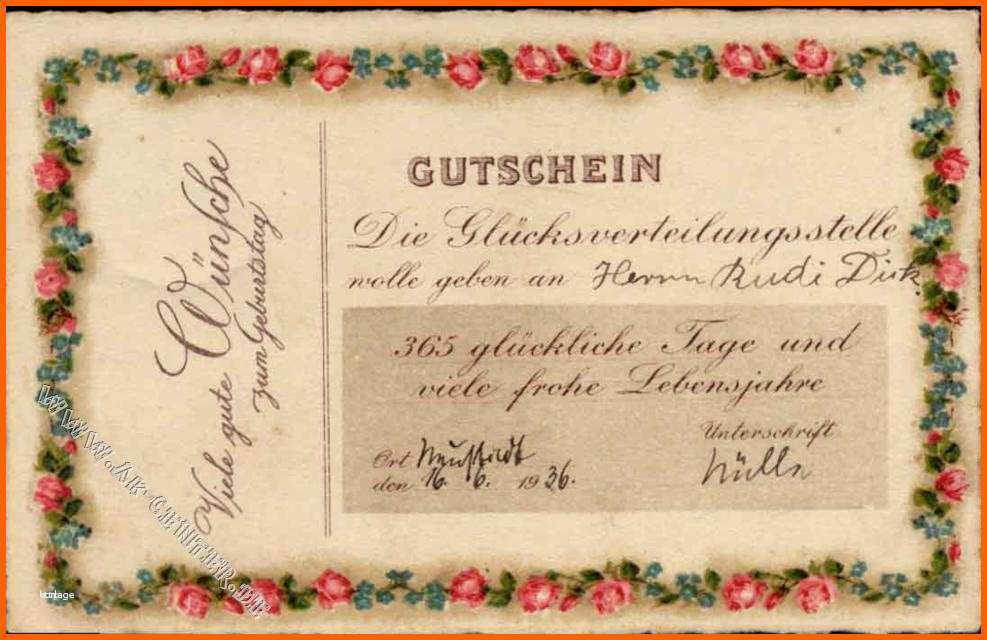 Viele gute Wünsche
zum Geburtstag
GUTSCHEIN
Die Glücksverteilungsstelle
wolle geben an Herrn Rudi
365 glückliche Tage und
viele frohe Lebensjahre
Unterschrift
Ort Neustadt
den 16. 6. 1936.
WWW.AK-CENTER.DE